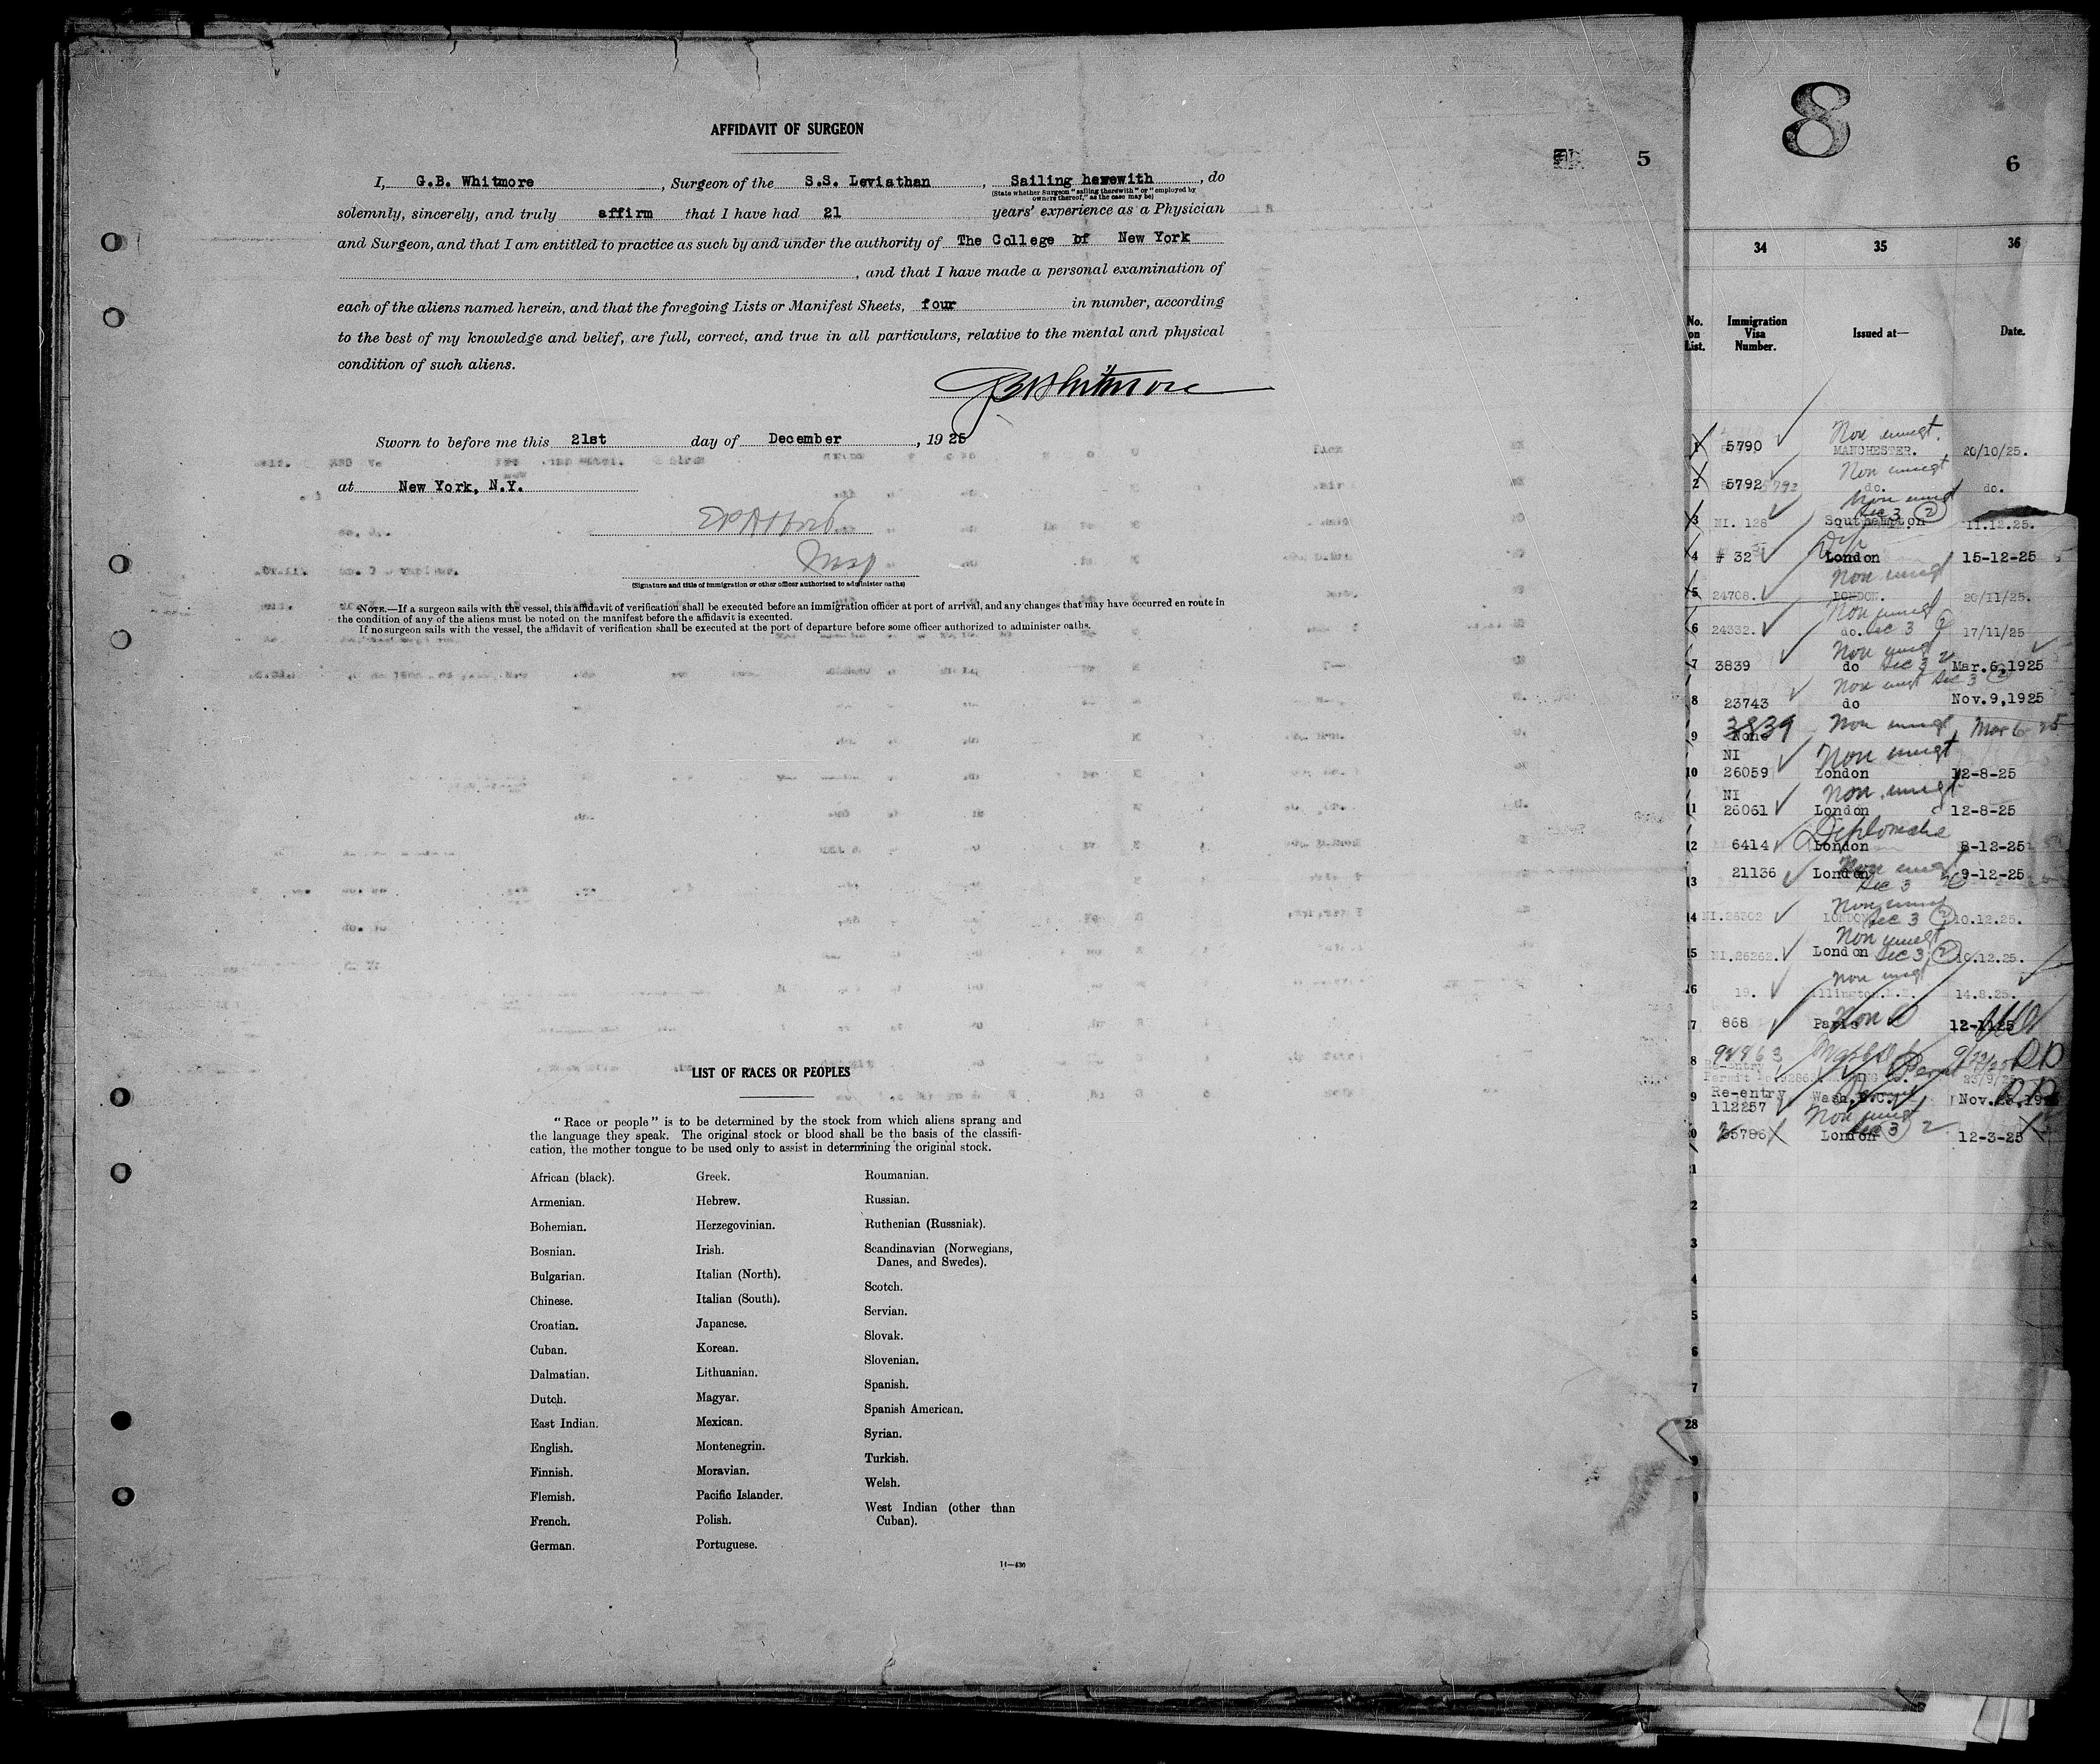 AFFIDAVIT OF SURGEON
5
I, G.B. Whitmore, Surgeon of the S.S. Leviathan, Sailing herewith, do
(State whether Surgeon "sailing therewith" or "employed by
owners thereof," as the case may be)
solemnly, sincerely, and truly affirm that I have had 21 years' experience as a Physician
and Surgeon, and that I am entitled to practice as such by and under the authority of The College of New York
, and that I have made a personal examination of
each of the aliens named herein, and that the foregoing Lists or Manifest Sheets, four in number, according
to the best of my knowledge and belief, are full, correct, and true in all particulars, relative to the mental and physical
condition of such aliens.
GBWhitmore
Sworn to before me this 21st day of December, 1925
at New York, N.Y.
Insp
(Signature and title of immigration or other officer authorized to administer oaths)
NOTE.—If a surgeon sails with the vessel, this affidavit of verification shall be executed before an immigration officer at port of arrival, and any changes that may have occurred en route in
the condition of any of the aliens must be noted on the manifest before the affidavit is executed.
If no surgeon sails with the vessel, the affidavit of verification shall be executed at the port of departure before some officer authorized to administer oaths.
LIST OF RACES OR PEOPLES
"Race or people" is to be determined by the stock from which aliens sprang and
the language they speak. The original stock or blood shall be the basis of the classifi-
cation, the mother tongue to be used only to assist in determining the original stock.
African (black).
Armenian.
Bohemian.
Bosnian.
Bulgarian.
Chinese.
Croatian.
Cuban.
Dalmatian.
Dutch.
East Indian.
English.
Finnish.
Flemish.
French.
German.
Greek.
Hebrew.
Herzegovinian.
Irish.
Italian (North).
Italian (South).
Japanese.
Korean.
Lithuanian.
Magyar.
Mexican.
Montenegrin.
Moravian.
Pacific Islander.
Polish.
Portuguese.
Roumanian.
Russian.
Ruthenian (Russniak).
Scandinavian (Norwegians,
Danes, and Swedes).
Scotch.
Servian.
Slovak.
Slovenian.
Spanish.
Spanish American.
Syrian.
Turkish.
Welsh.
West Indian (other than
Cuban).
14—430
8
6
34 35 36
No. on List. Immigration Visa Number. Issued at— Date.
Non immgt.
1 5790 MANCHESTER. 20/10/25.
Non immgt
2 5792 5792 do. do.
Non immgt
Sec 3 (2)
3 NI. 128 Southampton 11.12.25.
Dip
4 # 32 London 15-12-25
Non immgt
5 24708. LONDON. 20/11/25.
Non immgt
6 24332. do. Sec 3 2 17/11/25
Non immgt
7 3839 do Sec 3 2 Mar.6,1925
Non immgt Sec 3 (2)
8 23743 do Nov.9,1925
9 3839 None Non immgt Mar 6-25
NI Non immgt
10 26059 London 12-8-25
NI Non immgt
11 26061 London 12-8-25
Diplomatic
12 6414 London 8-12-25
Non immgt
13 21136 London 9-12-25
Sec 3 2
Non immgt
14 NI.26302 LONDON Sec 3 (2) 10.12.25.
Non immgt
15 NI.26262. London Sec 3 (2) 10.12.25.
Non immgt
16 19. 14.8.25.
7 868 Paris Non 12-1125
8 92863 RP
Re-entry Permit
Permit No. 92863 23/9/25
9 Re-entry Wash,D.C. Nov. RP
112257
Non immgt
0 London Sec 3 2 12-3-25
1
2
3
4
5
6
7
28
9
0